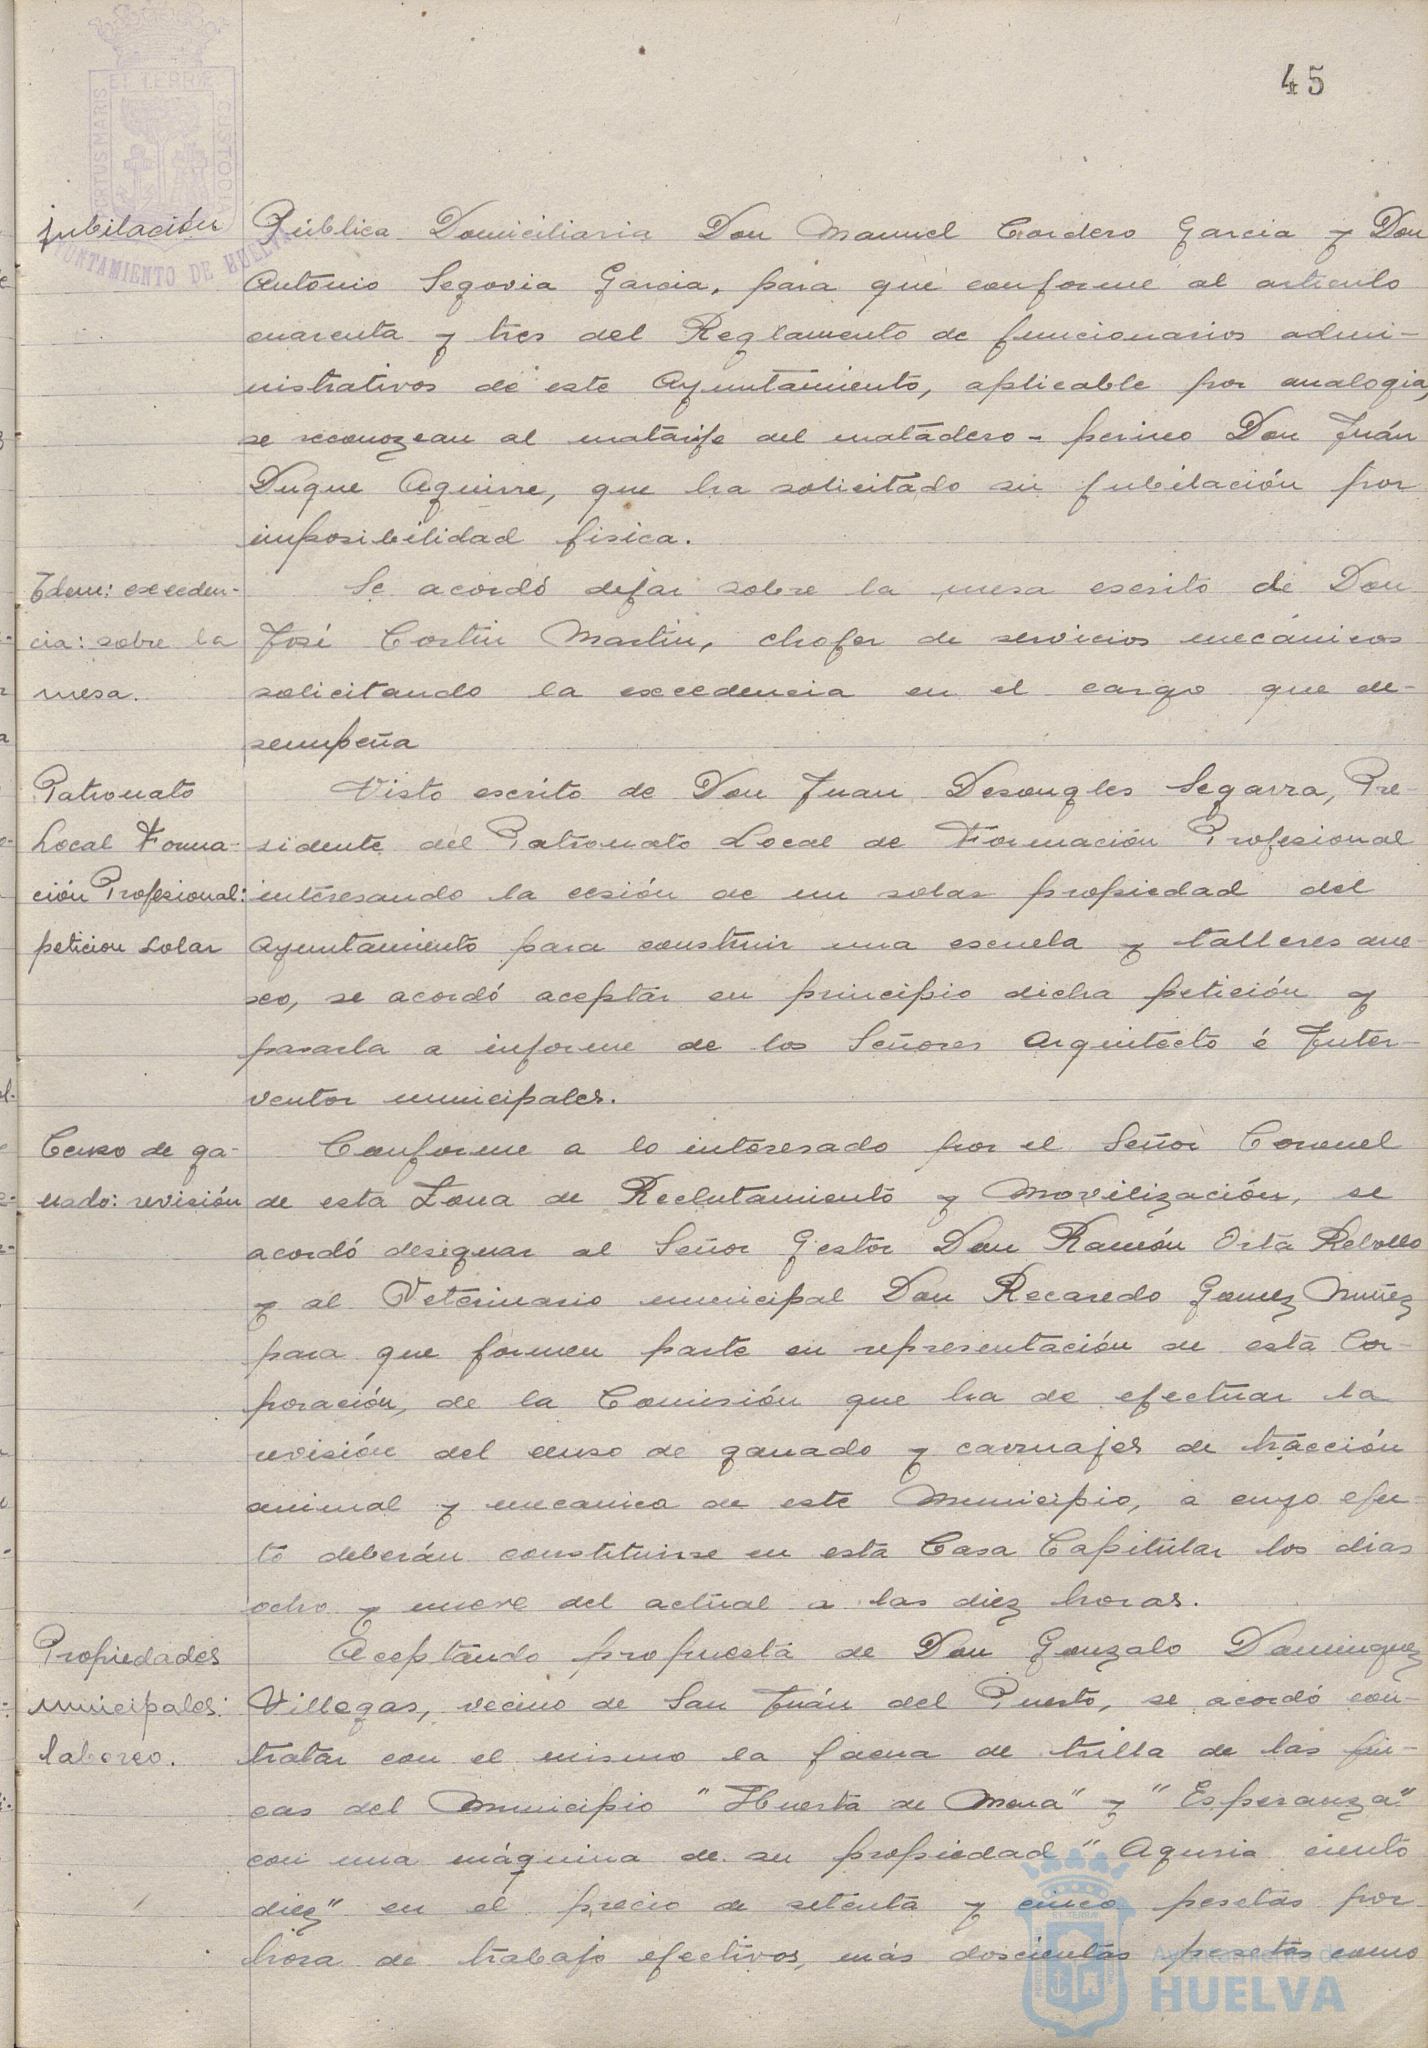 45
PORTUS MARIS ET TERRÆ CUSTODIA
AYUNTAMIENTO DE HUELVA
jubilación
Pública Domiciliaria Don Manuel Cordero Garcia y Don
Antonio Segovia Garcia, para que conforme al articulo
cuarenta y tres del Reglamento de funcionarios admi-
nistrativos de este Ayuntamiento, aplicable por analogia,
se reconozcan al matarife del matadero - perineo Don Juán
Duque Aguirre, que ha solicitado su jubilación por
imposibilidad fisica.
Idem: exceden-
cia: sobre la
mesa.
Se acordó dejar sobre la mesa escrito de Don
José Costin Martin, chofer de servicios mecánicos
solicitando la excedencia en el cargo que de-
sempeña
Patronato
Local Forma-
ción Profesional:
peticion solar
Visto escrito de Don Juan Desongles Segarra, Pre-
sidente del Patronato Local de Formación Profesional
interesando la cesión de un solar propiedad del
Ayuntamiento para construir una escuela y talleres ane-
xo, se acordó aceptar en principio dicha petición y
pasarla a informe de los Señores Arquitecto é Inter-
ventor municipales.
Censo de ga-
nado: revisión
Conforme a lo interesado por el Señor Coronel
de esta Zona de Reclutamiento y Movilización, se
acordó designar al Señor Gestor Don Ramón Orta Rebollo
y al Veterinario municipal Don Recaredo Gomez Nuñez
para que formen parte en representación de esta Cor-
poración, de la Comisión que ha de efectuar la
revisión del censo de ganado y carruajes de tracción
animal y mecanica de este Municipio, a cuyo efec-
to deberán constituirse en esta Casa Capitular los dias
ocho y nueve del actual a las diez horas.
Propiedades
municipales:
laboreo.
Aceptando propuesta de Don Gonzalo Dominguez
Villegas, vecino de San Juán del Puerto, se acordó con-
tratar con el mismo la faena de trilla de las fin-
cas del Municipio "Huerta de Mena" y "Esperanza"
con una máquina de su propiedad "Ajuria ciento
diez" en el precio de setenta y cinco pesetas por
hora de trabajo efectivos, más doscientas pesetas como
Ayuntamiento de
HUELVA